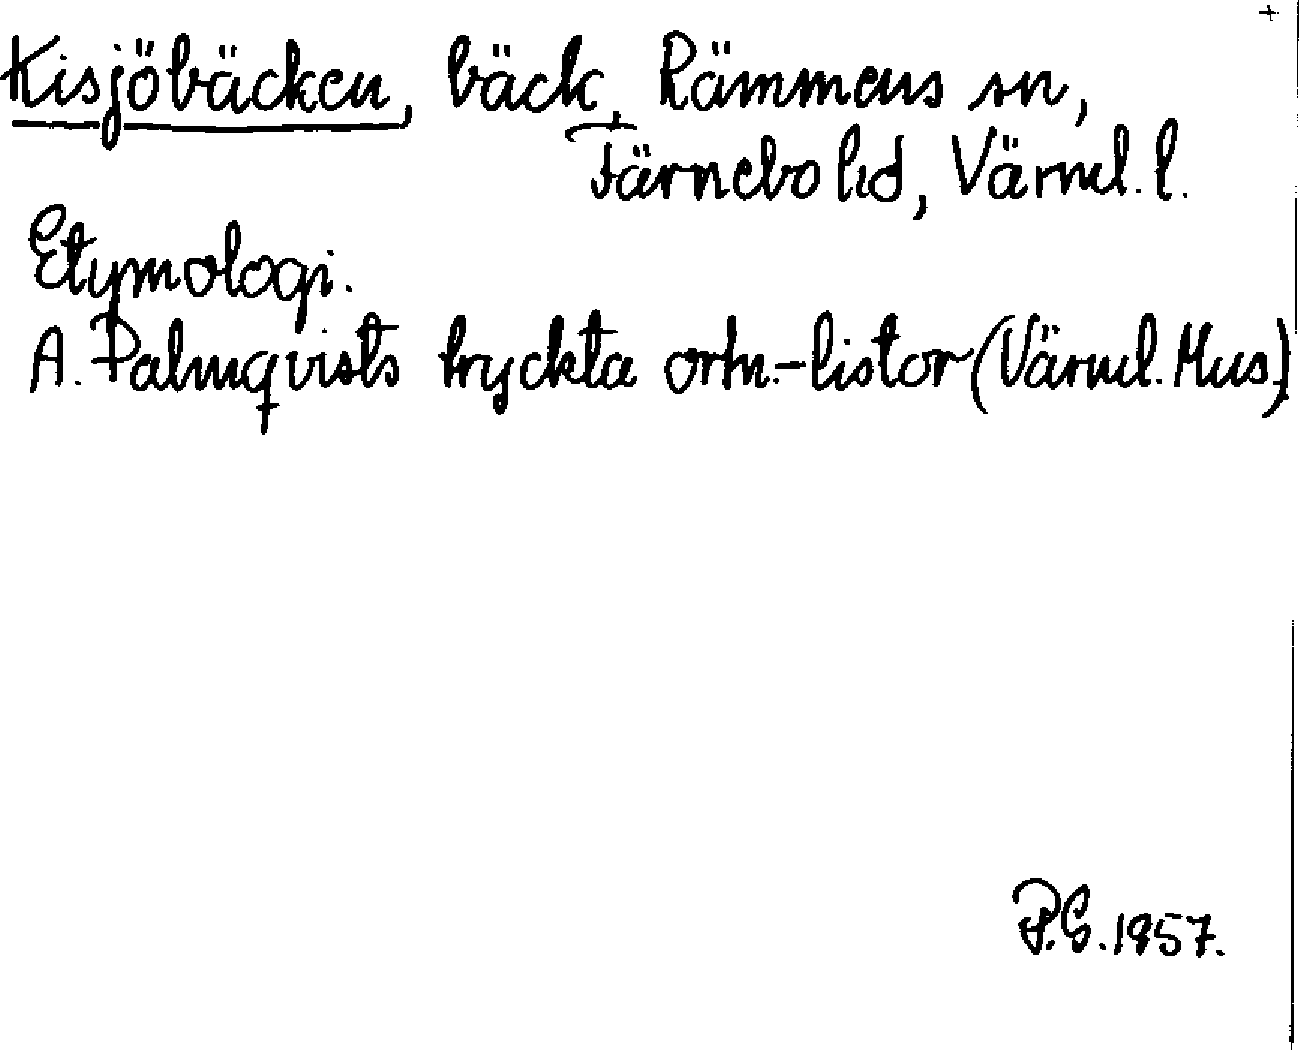 +
Kisjöbäcken, bäck, Rämmens sn,
Färnebo hd, Värml. l.
Etymologi.
A. Palmqvists tryckta ortn.-listor (Värml. Mus.)
P.G. 1957.